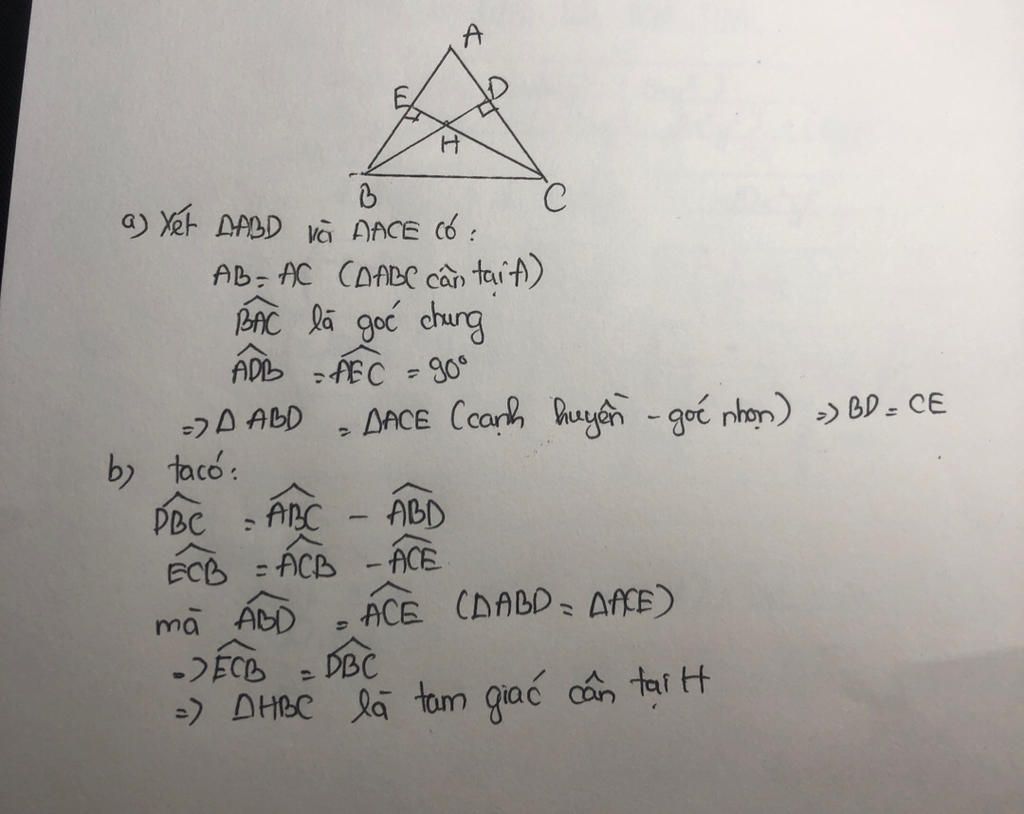 A
E D
H
B C
a) Xét ΔABD và ΔACE có:
AB = AC (ΔABC cân tại A)
\widehat{BAC} là góc chung
\widehat{ADB} = \widehat{AEC} = 90°
=> Δ ABD = ΔACE (cạnh huyền - góc nhọn) => BD = CE
b) ta có:
\widehat{DBC} = \widehat{ABC} - \widehat{ABD}
\widehat{ECB} = \widehat{ACB} - \widehat{ACE}
mà \widehat{ABD} = \widehat{ACE} (ΔABD = ΔACE)
=> \widehat{ECB} = \widehat{DBC}
=> ΔHBC là tam giác cân tại H